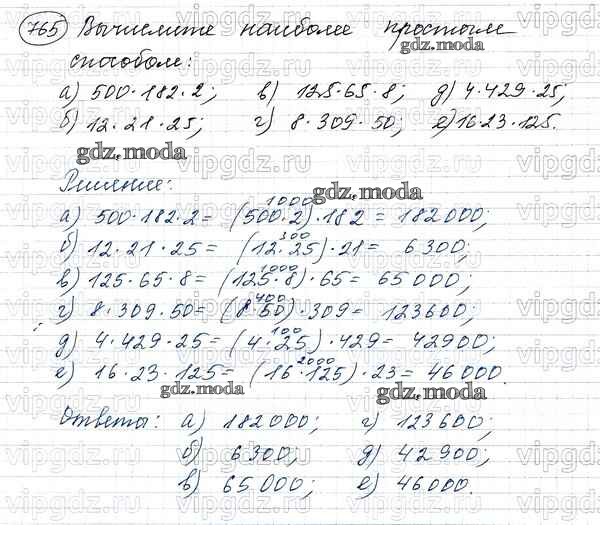 765 Вычислите наиболее простым
способом:
а) 500·182·2; в) 125·65·8; д) 4·429·25;
б) 12·21·25; г) 8·309·50; е) 16·23·125.
Решение:
1000
а) 500·182·2 = (500·2)·182 = 182000;
300
б) 12·21·25 = (12·25)·21 = 6300;
1000
в) 125·65·8 = (125·8)·65 = 65000;
400
г) 8·309·50 = (8·50)·309 = 123600;
100
д) 4·429·25 = (4·25)·429 = 42900;
2000
е) 16·23·125 = (16·125)·23 = 46000.
Ответы: а) 182000; г) 123600;
б) 6300; д) 42900;
в) 65000; е) 46000.
gdz.moda
gdz.moda
gdz.moda
gdz.moda
gdz.moda
vipgdz.ru